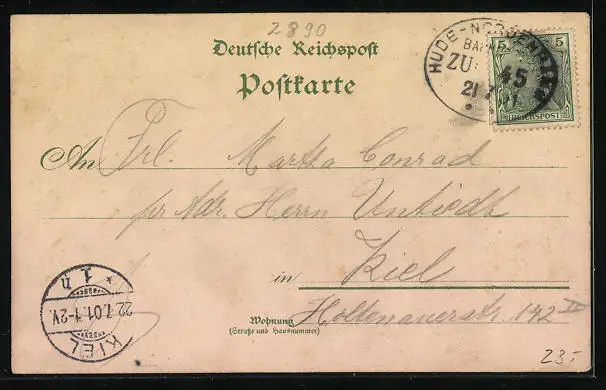 2890
Deutsche Reichspost
Postkarte
HUDE-NORDENHAM
BAHNPOST
ZUG 45
21 7 01
5 5
REICHSPOST
An Frl. Martha Conrad
pr Adr. Herrn Untiedt
in Kiel
Wohnung
(Straße und Hausnummer)
Holtenauerstr. 142 II
KIEL
22.7.01.1-2V.
* 1 n
23.-